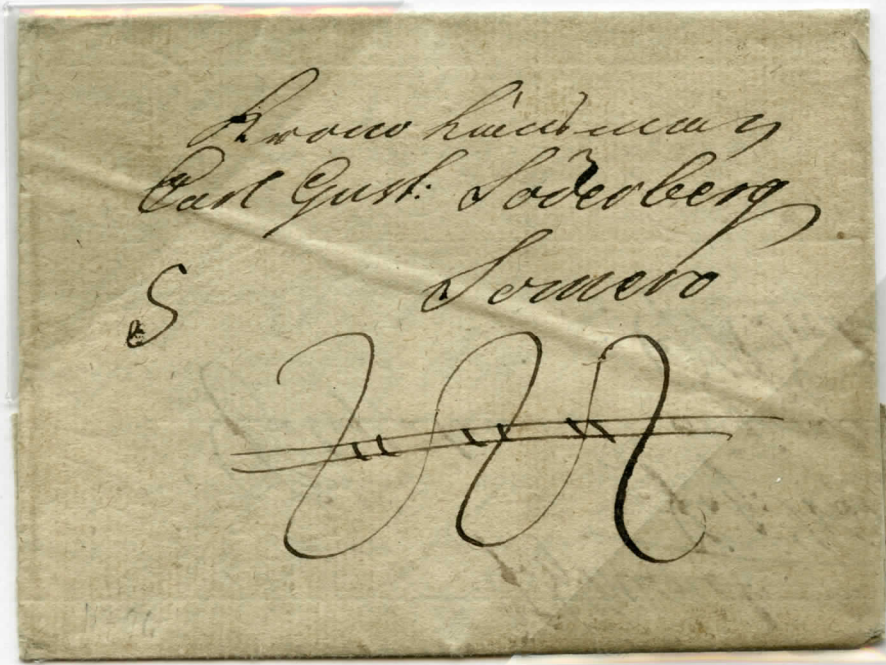 Krono Länsman
Carl Gust: Söderberg
Somero
S